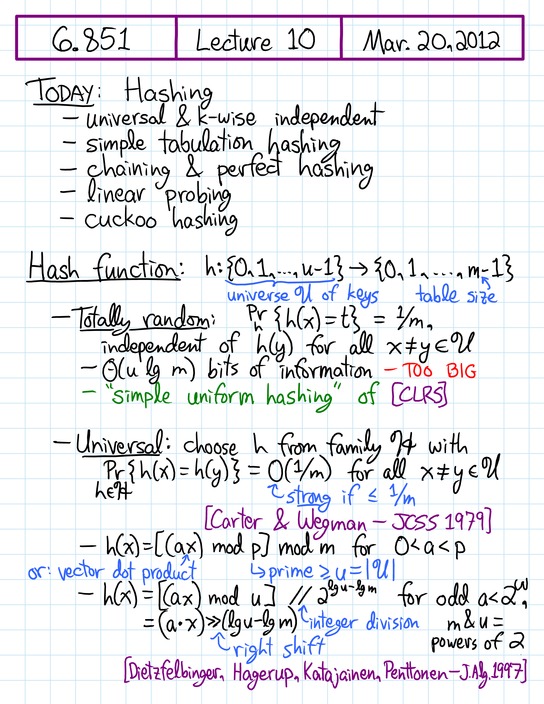 6.851 Lecture 10 Mar. 20, 2012
TODAY: Hashing
– universal & k-wise independent
– simple tabulation hashing
– chaining & perfect hashing
– linear probing
– cuckoo hashing
Hash function: h: {0, 1, ..., u-1} → {0, 1, ..., m-1}
universe 𝒰 of keys table size
– Totally random: Pr_h {h(x) = t} = 1/m,
independent of h(y) for all x ≠ y ∈ 𝒰
– Θ(u lg m) bits of information – TOO BIG
– "simple uniform hashing" of [CLRS]
– Universal: choose h from family ℋ with
Pr_{h∈ℋ} {h(x) = h(y)} = O(1/m) for all x ≠ y ∈ 𝒰
strong if ≤ 1/m
[Carter & Wegman – JCSS 1979]
– h(x) = [(ax) mod p] mod m for 0 < a < p
or: vector dot product ↳ prime ≥ u = |𝒰|
– h(x) = [(ax) mod u] // 2^{lg u - lg m} for odd a < 2^w,
= (a·x) ≫ (lg u - lg m) integer division m & u =
right shift powers of 2
[Dietzfelbinger, Hagerup, Katajainen, Penttonen – J.Alg. 1997]